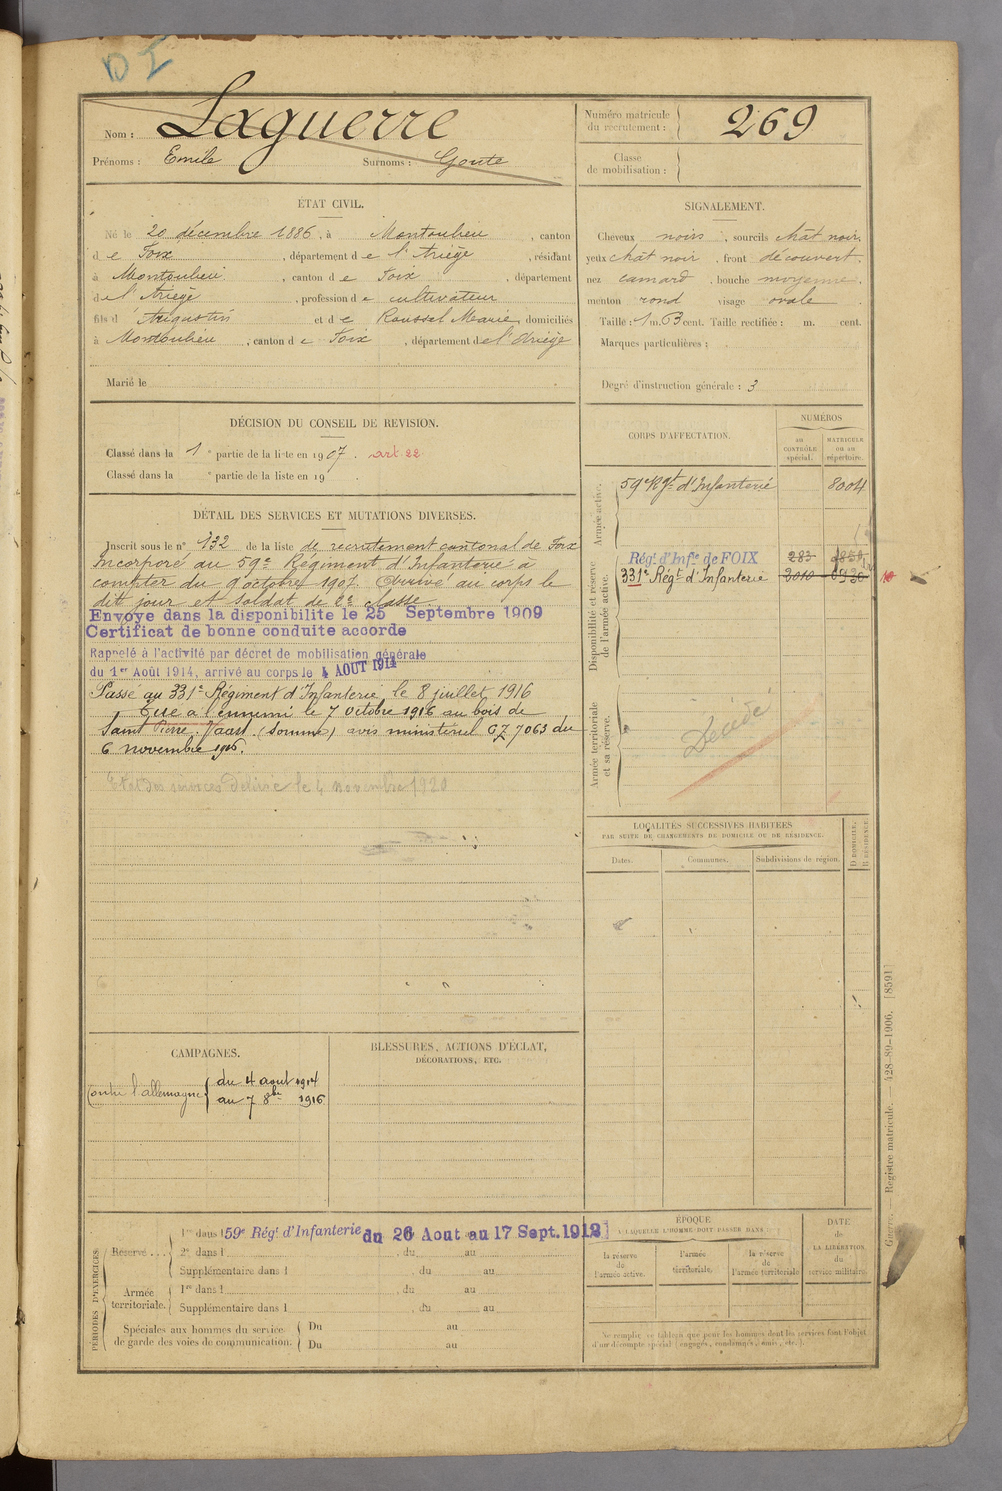 DI
Nom : Laguerre
Prénoms : Emile Surnoms : Goute
Numéro matricule du recrutement : 269
Classe de mobilisation :
ÉTAT CIVIL.
Né le 20 décembre 1886, à Montoulieu, canton
de Foix, département de l'Ariège, résidant
à Montoulieu, canton de Foix, département
de l'Ariège, profession de cultivateur
fils d'Augustin et de Roussel Marie, domiciliés
à Montoulieu, canton de Foix, département de l'Ariège
Marié le
SIGNALEMENT.
Cheveux noirs, sourcils chât noir,
yeux chât noir, front découvert,
nez camard, bouche moyenne,
menton rond visage ovale
Taille : 1 m. 63 cent. Taille rectifiée : m. cent.
Marques particulières :
Degré d'instruction générale : 3
DÉCISION DU CONSEIL DE REVISION.
Classé dans la 1e partie de la liste en 1907. art 22
Classé dans la e partie de la liste en 19 .
DÉTAIL DES SERVICES ET MUTATIONS DIVERSES.
Inscrit sous le n° 132 de la liste de recrutement cantonal de Foix
Incorporé au 59e Régiment d'Infanterie à
compter du 9 octobre 1907. Arrivé au corps le
dit jour et soldat de 2e classe
Envoye dans la disponibilite le 25 Septembre 1909
Certificat de bonne conduite accorde
Rappelé à l'activité par décret de mobilisation générale
du 1er Août 1914, arrivé au corps le 4 AOUT 1914
Passé au 331e Régiment d'Infanterie, le 8 juillet 1916
Tué à l'ennemi le 7 octobre 1916 au bois de
Saint Pierre Vaast (Somme) avis ministériel GZ 7063 du
6 novembre 1916.
Etat des services délivré le 4 novembre 1920
CORPS D'AFFECTATION.
NUMÉROS
AU CONTRÔLE spécial.
MATRICULE OU AU répertoire.
Armée active.
59e Rgt d'Infanterie 8004
Disponibilité et réserve de l'armée active.
Régt d'Infie de FOIX 283
331e Régt d'Infanterie
Armée territoriale et sa réserve.
Décédé
LOCALITÉS SUCCESSIVES HABITÉES
PAR SUITE DE CHANGEMENTS DE DOMICILE OU DE RÉSIDENCE.
Dates. Communes. Subdivisions de région.
D DOMICILE.
R RÉSIDENCE
CAMPAGNES.
Contre l'allemagne du 4 aout 1914
au 7 8bre 1916
BLESSURES, ACTIONS D'ÉCLAT,
DÉCORATIONS, ETC.
PÉRIODES D'EXERCICES.
Réserve...
1re dans l 59e Régt d'Infanterie du 26 Aout au 17 Sept. 1912
2e dans l du au
Supplémentaire dans l du au
Armée territoriale.
1re dans l du au
Supplémentaire dans l du au
Spéciales aux hommes du service de garde des voies de communication.
Du au
Du au
ÉPOQUE
À LAQUELLE L'HOMME DOIT PASSER DANS
la réserve de l'armée active.
l'armée territoriale.
la réserve de l'armée territoriale
DATE de LA LIBÉRATION du service militaire.
Ne remplir ce tableau que pour les hommes dont les services font l'objet
d'un décompte spécial (engagés, condamnés, omis, etc.).
Registre matricule. — 428-89-1906. [8591]